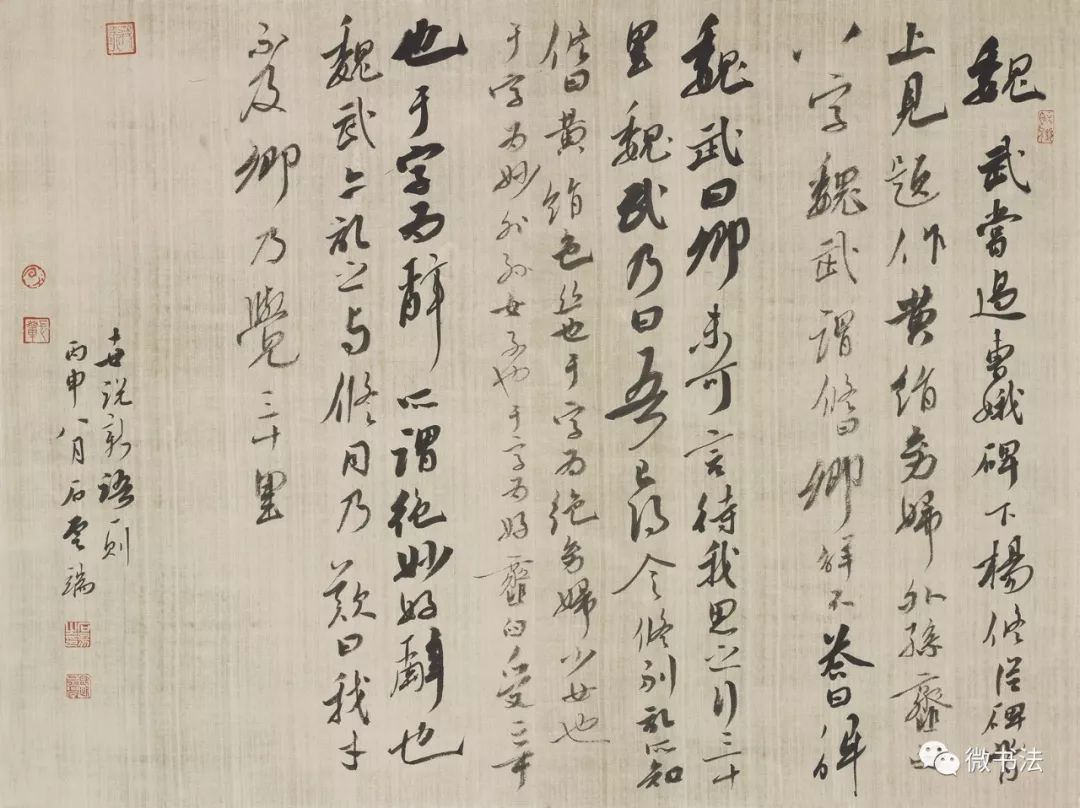 魏武嘗過曹娥碑下楊脩從碑背
上見題作黃絹幼婦外孫虀臼
八字魏武謂脩曰卿解不答曰解
魏武曰卿未可言待我思之行三十
里魏武乃曰吾已得令脩別記所知
脩曰黃絹色絲也于字為絕幼婦少女也
于字為妙外孫女子也于字為好虀臼受辛
也于字為辭所謂絕妙好辭也
魏武亦記之与脩同乃歎曰我才
不及卿乃覺三十里
世說新語一則
丙申八月石
微书法